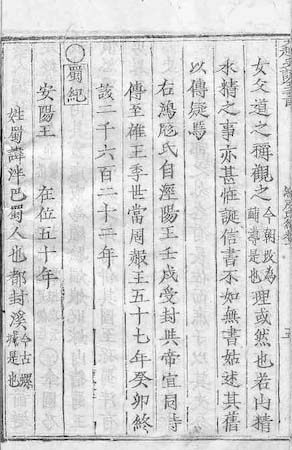 女父道之稱觀之今朝改為輔導是也理或然也若山精
水精之事亦甚怪誕信書不如無書姑述其舊
以傳疑焉
右鴻厖氏自涇陽王壬戌受封與帝宜同時
傳至雄王季世當周赧王五十七年癸卯終
該二千六百二十二年
蜀紀
安陽王 在位五十年
姓蜀諱泮巴蜀人也都封溪今古螺城是也